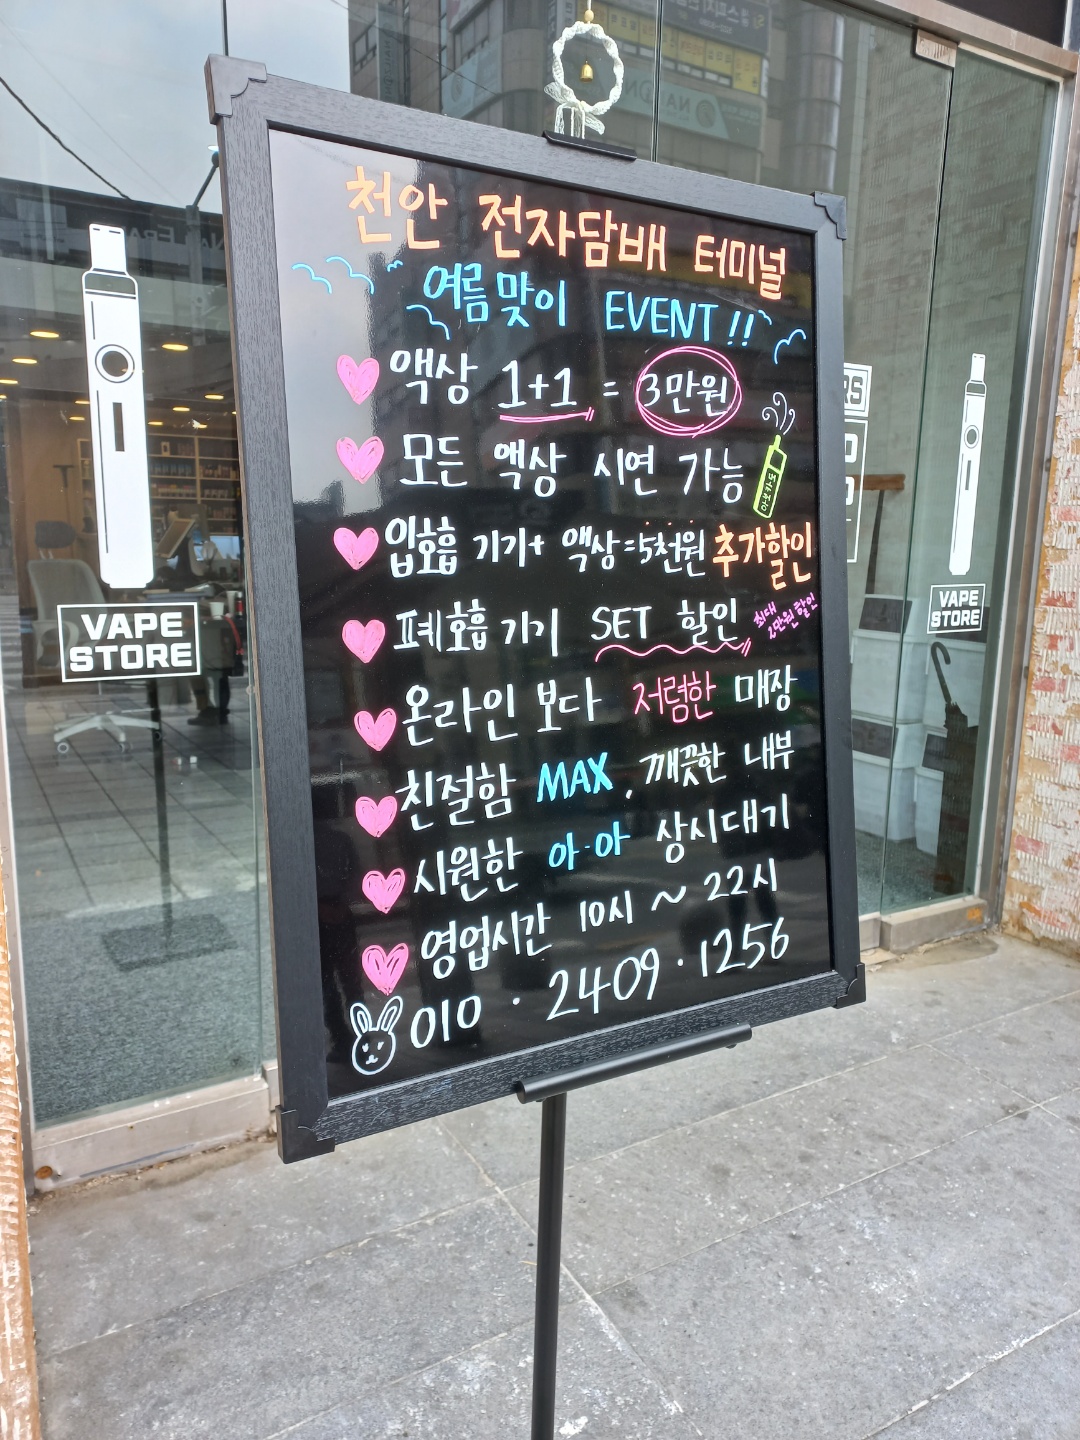 천안 전자담배 터미널
여름맞이 EVENT !!
액상 1+1 = 3만원
모든 액상 시연 가능
입호흡 기기+ 액상=5천원 추가할인
폐호흡 기기 SET 할인 최대 2만원 할인
온라인 보다 저렴한 매장
친절함 MAX, 깨끗한 내부
시원한 아·아 상시대기
영업시간 10시 ~ 22시
010 · 2409 · 1256
VAPE
STORE
VAPE
STORE